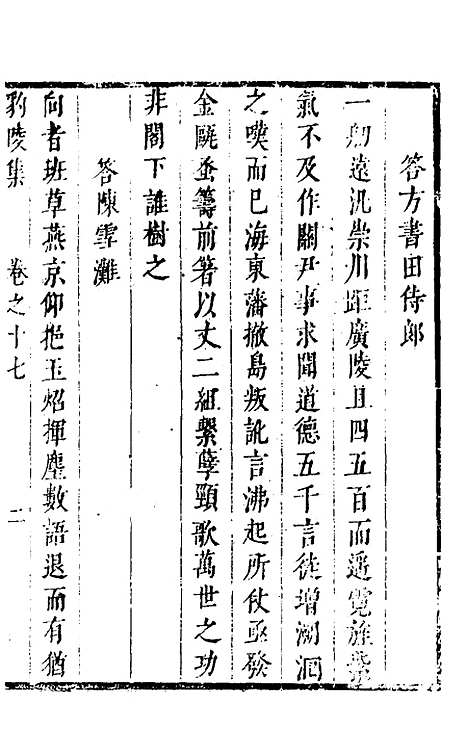 答方書田侍郎
一舠遠汎崇川距廣陵且四五百而遥霓旌紫
氣不及作關尹事求聞道德五千言徒增溯洄
之嘆而已海東藩撤島叛訛言沸起所仗亟發
金甌蚤籌前箸以丈二組繫孽頸歌萬世之功
非閣下誰樹之
答陳雪灘
向者班草燕京仰挹玉炤揮麈數語退而有猶
豹陵集 卷之十七 二